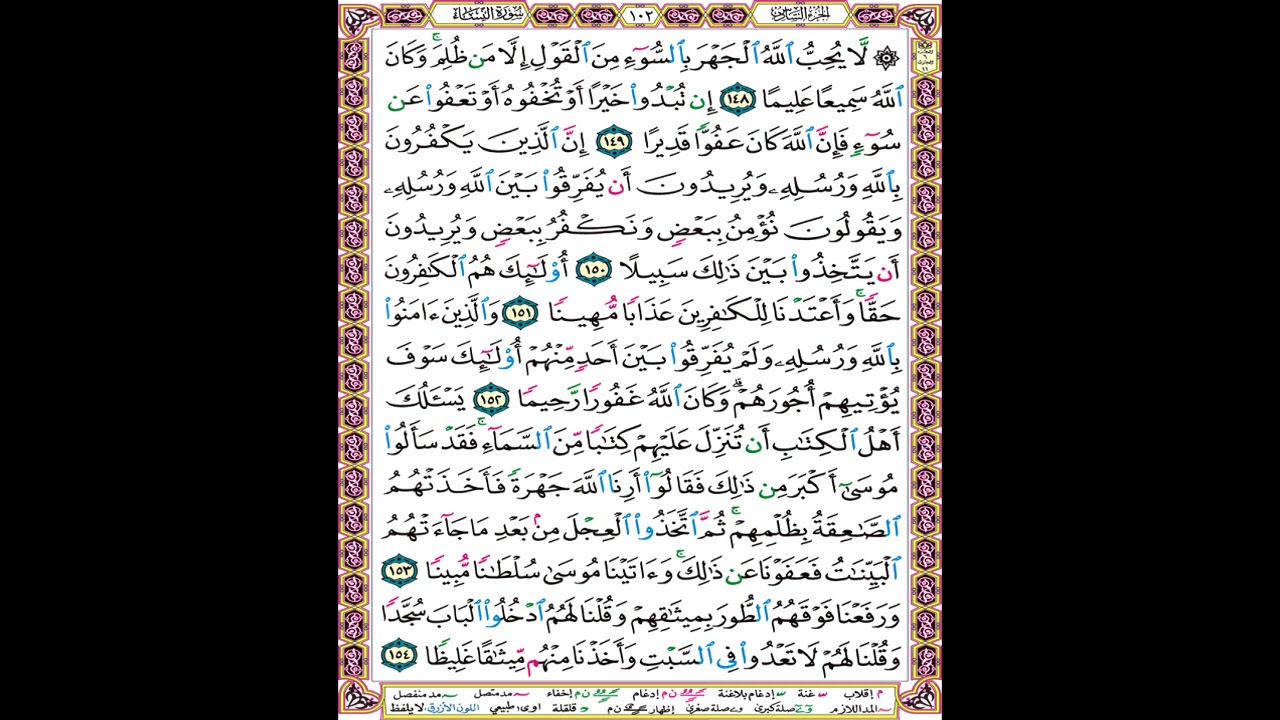 سورة النساء ١٠٢ الجزء السادس
۞ لَّا يُحِبُّ ٱللَّهُ ٱلْجَهْرَ بِٱلسُّوٓءِ مِنَ ٱلْقَوْلِ إِلَّا مَن ظُلِمَ ۚ وَكَانَ
ٱللَّهُ سَمِيعًا عَلِيمًا ١٤٨ إِن تُبْدُوا۟ خَيْرًا أَوْ تُخْفُوهُ أَوْ تَعْفُوا۟ عَن
سُوٓءٍ فَإِنَّ ٱللَّهَ كَانَ عَفُوًّا قَدِيرًا ١٤٩ إِنَّ ٱلَّذِينَ يَكْفُرُونَ
بِٱللَّهِ وَرُسُلِهِۦ وَيُرِيدُونَ أَن يُفَرِّقُوا۟ بَيْنَ ٱللَّهِ وَرُسُلِهِۦ
وَيَقُولُونَ نُؤْمِنُ بِبَعْضٍ وَنَكْفُرُ بِبَعْضٍ وَيُرِيدُونَ
أَن يَتَّخِذُوا۟ بَيْنَ ذَٰلِكَ سَبِيلًا ١٥٠ أُو۟لَٰٓئِكَ هُمُ ٱلْكَٰفِرُونَ
حَقًّا ۚ وَأَعْتَدْنَا لِلْكَٰفِرِينَ عَذَابًا مُّهِينًا ١٥١ وَٱلَّذِينَ ءَامَنُوا۟
بِٱللَّهِ وَرُسُلِهِۦ وَلَمْ يُفَرِّقُوا۟ بَيْنَ أَحَدٍ مِّنْهُمْ أُو۟لَٰٓئِكَ سَوْفَ
يُؤْتِيهِمْ أُجُورَهُمْ ۗ وَكَانَ ٱللَّهُ غَفُورًا رَّحِيمًا ١٥٢ يَسْـَٔلُكَ
أَهْلُ ٱلْكِتَٰبِ أَن تُنَزِّلَ عَلَيْهِمْ كِتَٰبًا مِّنَ ٱلسَّمَآءِ ۚ فَقَدْ سَأَلُوا۟
مُوسَىٰٓ أَكْبَرَ مِن ذَٰلِكَ فَقَالُوٓا۟ أَرِنَا ٱللَّهَ جَهْرَةً فَأَخَذَتْهُمُ
ٱلصَّٰعِقَةُ بِظُلْمِهِمْ ۚ ثُمَّ ٱتَّخَذُوا۟ ٱلْعِجْلَ مِنۢ بَعْدِ مَا جَآءَتْهُمُ
ٱلْبَيِّنَٰتُ فَعَفَوْنَا عَن ذَٰلِكَ ۚ وَءَاتَيْنَا مُوسَىٰ سُلْطَٰنًا مُّبِينًا ١٥٣
وَرَفَعْنَا فَوْقَهُمُ ٱلطُّورَ بِمِيثَٰقِهِمْ وَقُلْنَا لَهُمُ ٱدْخُلُوا۟ ٱلْبَابَ سُجَّدًا
وَقُلْنَا لَهُمْ لَا تَعْدُوا۟ فِى ٱلسَّبْتِ وَأَخَذْنَا مِنْهُم مِّيثَٰقًا غَلِيظًا ١٥٤
م إقلاب غنة إدغام بلاغنة ن م إدغام ن م إخفاء مد متصل مد منفصل
المد اللازم صلة كبرى صلة صغرى إظهار ن م قلقلة اوى: طبيعي اللون الأزرق: لا يلفظ